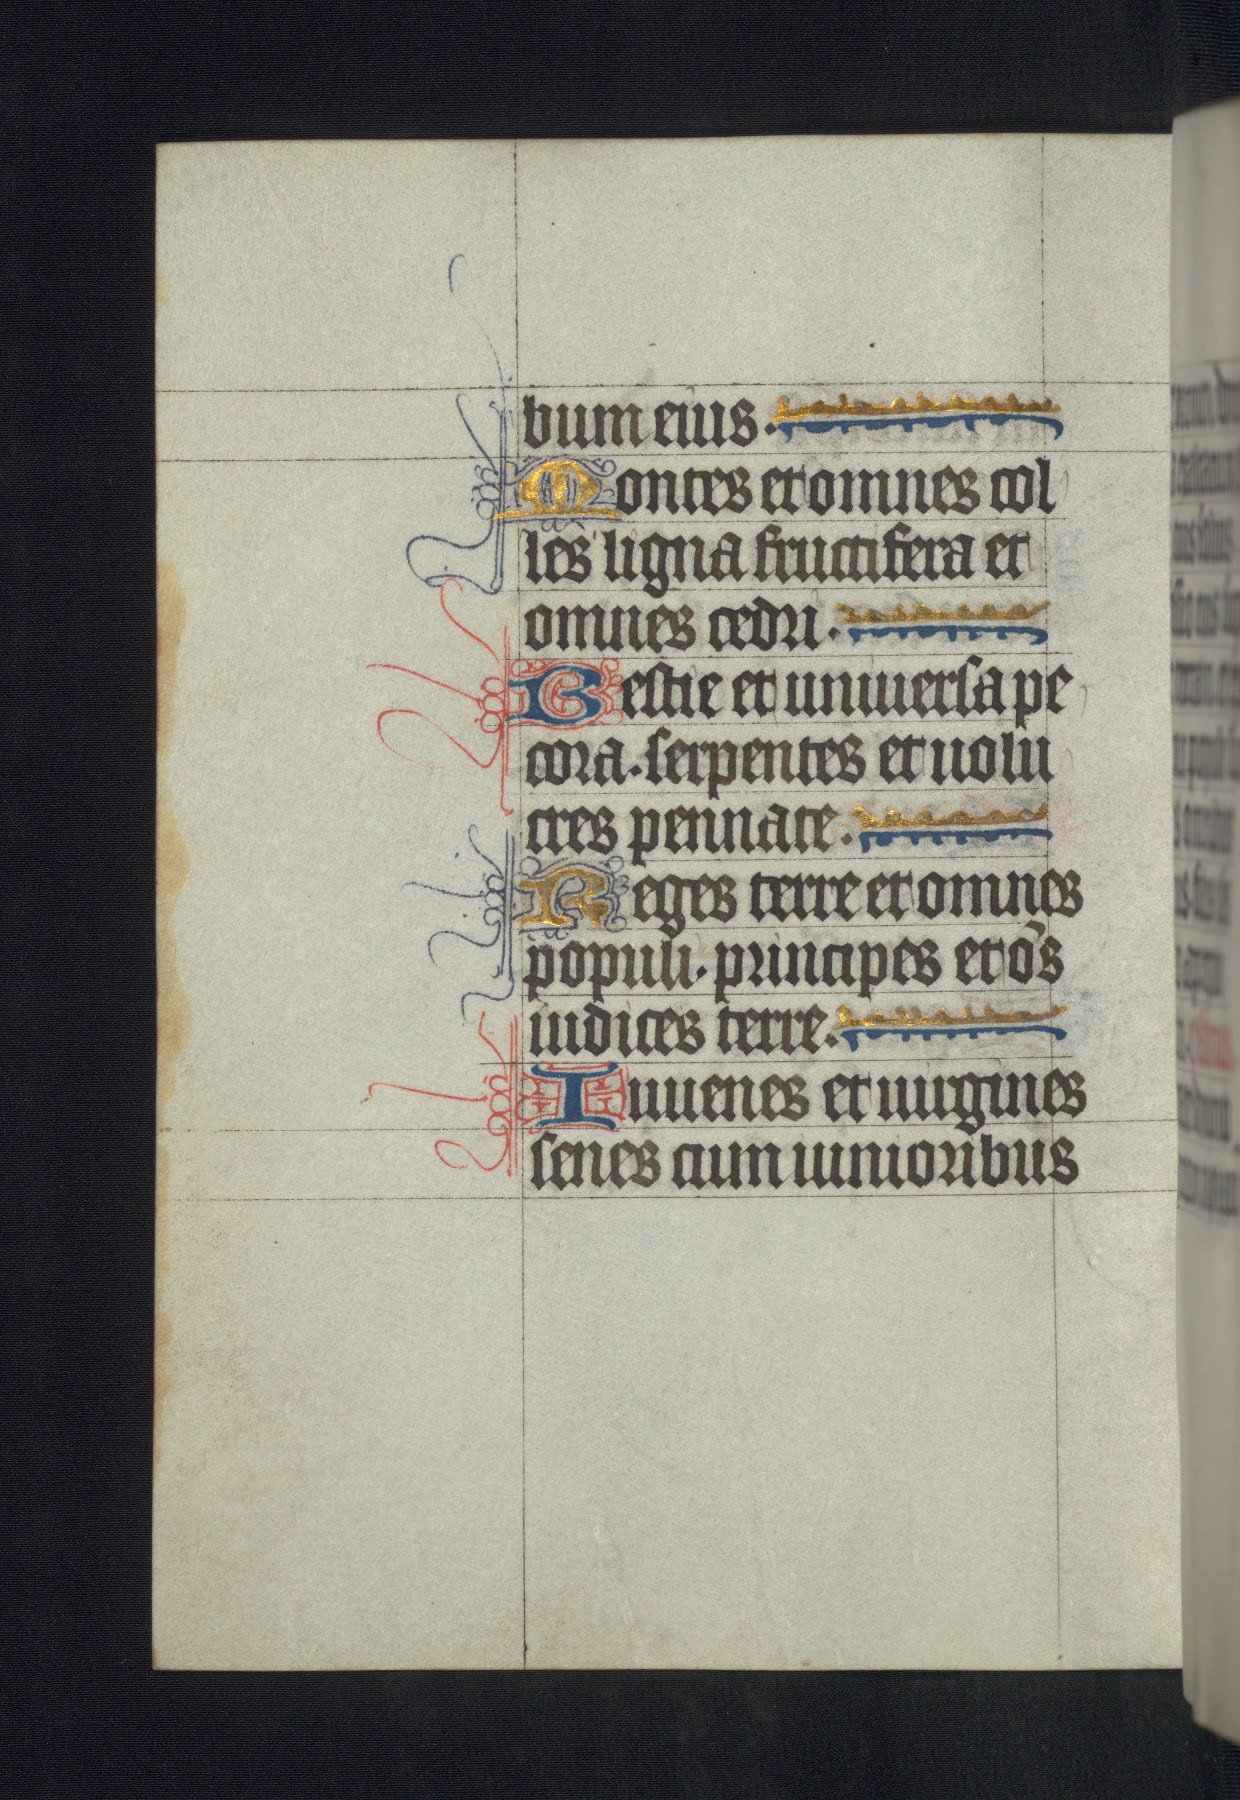 bum eius.
Montes et omnes col
les ligna fructifera et
omnes cedri.
Bestie et uniuersa pe
cora. serpentes et uolu
cres pennate.
Reges terre et omnes
populi. principes et o̅s
iudices terre.
Iuuenes et uirgines
senes cum iunioribus